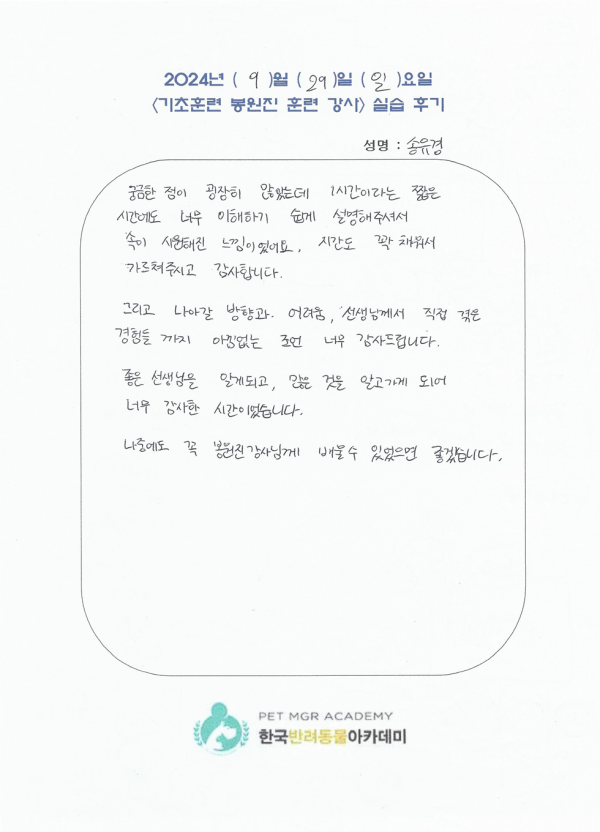 2024년 ( 9 )월 ( 29 )일 ( 일 )요일
<기초훈련 봉원진 훈련 강사> 실습 후기
성명 : 송유경
궁금한 점이 굉장히 많았는데 1시간이라는 짧은
시간에도 너무 이해하기 쉽게 설명해주셔서
속이 시원해진 느낌이었어요, 시간도 꽉 채워서
가르쳐주시고 감사합니다.
그리고 나아갈 방향과 어려움, 선생님께서 직접 겪은
경험들 까지 아낌없는 조언 너무 감사드립니다.
좋은 선생님을 알게되고, 많은 것을 알고가게 되어
너무 감사한 시간이었습니다.
나중에도 꼭 봉원진강사님께 배울수 있었으면 좋겠습니다.
PET MGR ACADEMY
한국반려동물아카데미